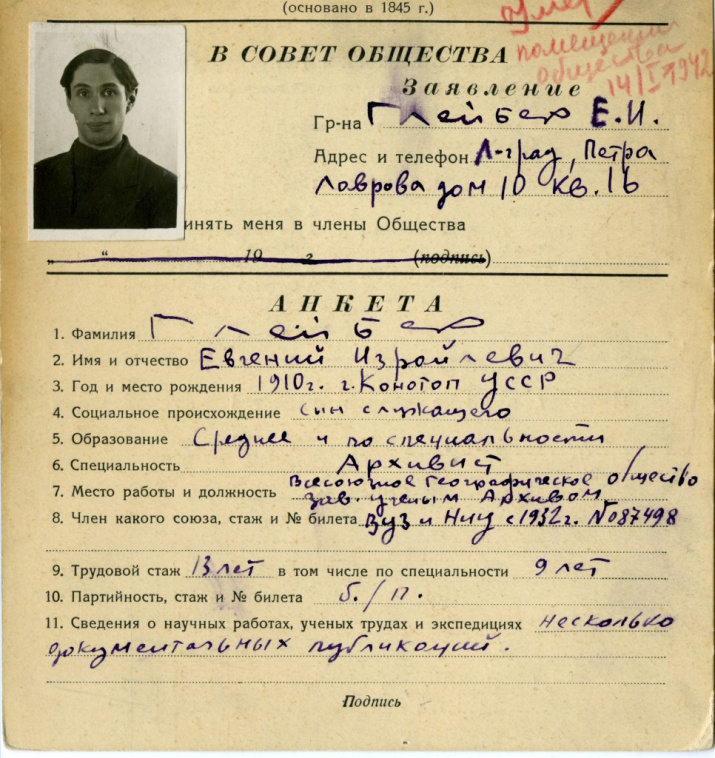 (основано в 1845 г.)
Умер
В СОВЕТ ОБЩЕСТВА
помещении
общества
14/I 1942
Заявление
Гр-на Глейбер Е.И.
Адрес и телефон Л-град, Петра
Лаврова дом 10 кв. 16
инять меня в члены Общества
„ “ 19 г (подпись)
АНКЕТА
1. Фамилия Глейбер
2. Имя и отчество Евгений Израйлевич
3. Год и место рождения 1910г. г. Конотоп УССР
4. Социальное происхождение сын служащего
5. Образование Среднее и по специальности
6. Специальность Архивист
Всесоюзное Географическое общество
7. Место работы и должность зав. ученым Архивом
8. Член какого союза, стаж и № билета ВУЗ и НИУ с 1932г. №087498
9. Трудовой стаж 13 лет в том числе по специальности 9 лет
10. Партийность, стаж и № билета б./п.
11. Сведения о научных работах, ученых трудах и экспедициях несколько
документальных публикаций.
Подпись